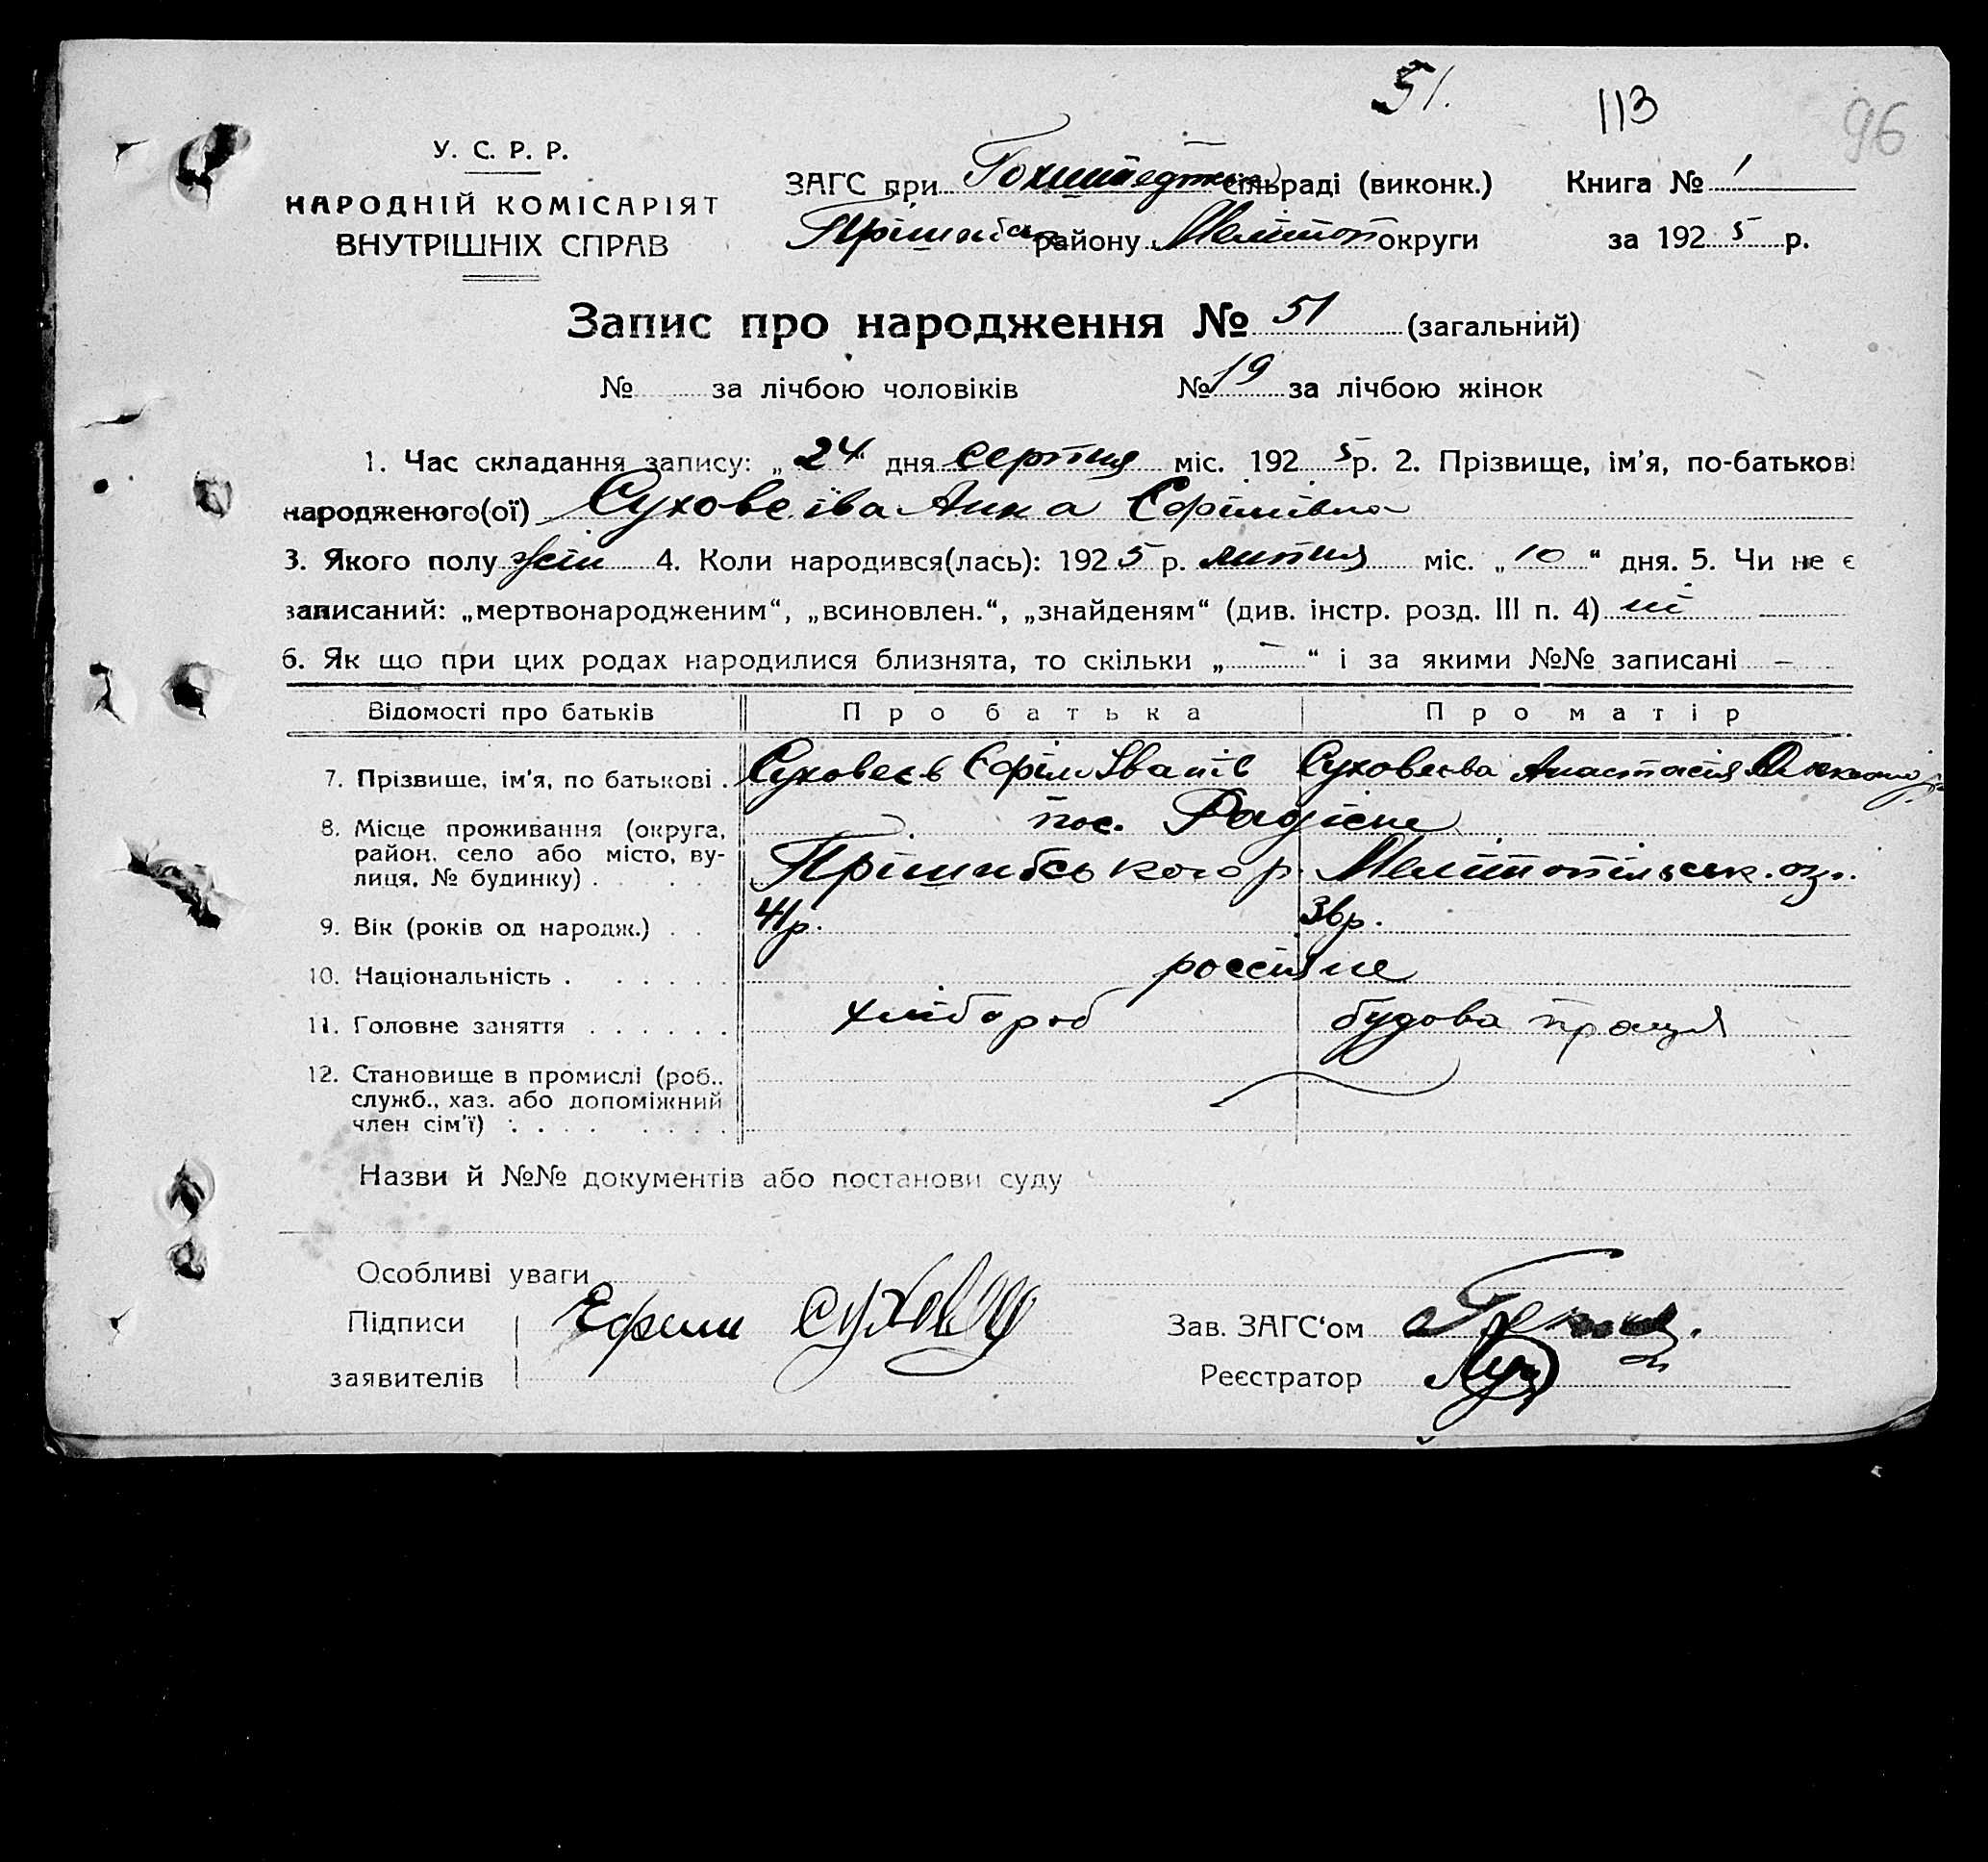 51.
113
96
У. С. Р. Р.
НАРОДНІЙ КОМІСАРІЯТ
ВНУТРІШНІХ СПРАВ
ЗАГС при Гохштедтськ сільраді (виконк.) Книга № 1
Прішибськ району Мелітоп округи за 1925 р.
Запис про народження № 51 (загальний)
№ за лічбою чоловіків № 19 за лічбою жінок
1. Час складання запису: „24“ дня серпня міс. 1925 р. 2. Прізвище, ім'я, по-батькові
народженого(ої) Суховєіва Анна Єфімівна
3. Якого полу жін 4. Коли народився(лась): 1925 р. липня міс. „10“ дня. 5. Чи не є
записаний: „мертвонародженим“, „всиновлен.“, „знайденям“ (див. інстр. розд. III п. 4) ні
6. Як що при цих родах народилися близнята, то скільки „—“ і за якими №№ записані —
Відомості про батьків Про батька Про матір
7. Прізвище, ім'я, по батькові . Суховеєв Єфім Іванів Суховеєва Анастасія
8. Місце проживання (округа, пос.
район, село або місто, ву-
лиця, № будинку) . . . . Прішибського р. Мелітопільськ. окр.
9. Вік (років од народж.) . . 41р. 36р.
10. Національність . . . . . . россіяне
11. Головне заняття . . . . . . хлібороб будова праця
12. Становище в промислі (роб..
служб., хаз. або допоміжний
член сім'ї) . . . . . . . .
Назви й №№ документів або постанови суду
Особливі уваги
Підписи Ефим Зав. ЗАГС‘ом
заявителів Реєстратор